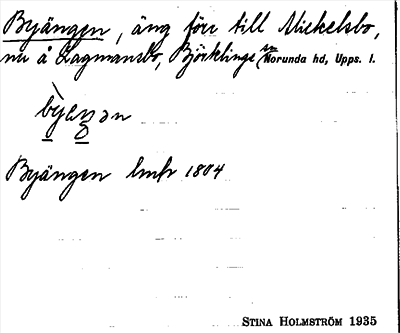 Byängen, äng förr till Mickelsbo,
nu å Lagmansbo, Björklinge sn Norunda hd, Upps. l.
Byängen lmfr 1804
STINA HOLMSTRÖM 1935